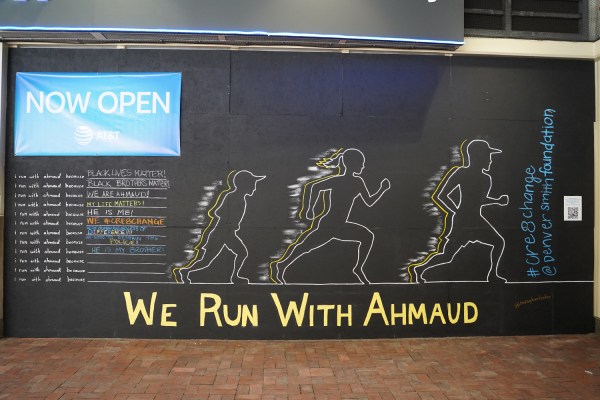 NOW OPEN
AT&T
I run with ahmaud because BLACK LIVES MATTER!
I run with ahmaud because BLACK BROTHERS MATTER
I run with ahmaud because WE ARE AHMAUD!
I run with ahmaud because MY LIFE MATTERS!
I run with ahmaud because HE IS ME!
I run with ahmaud because WE #CRE8CHANGE
I run with ahmaud because
I run with ahmaud because
I run with ahmaud because HE IS MY BROTHER!
I run with ahmaud because
I run with ahmaud because
I run with ahmaud because
WE RUN WITH AHMAUD
#cre8change
@denver smith foundation